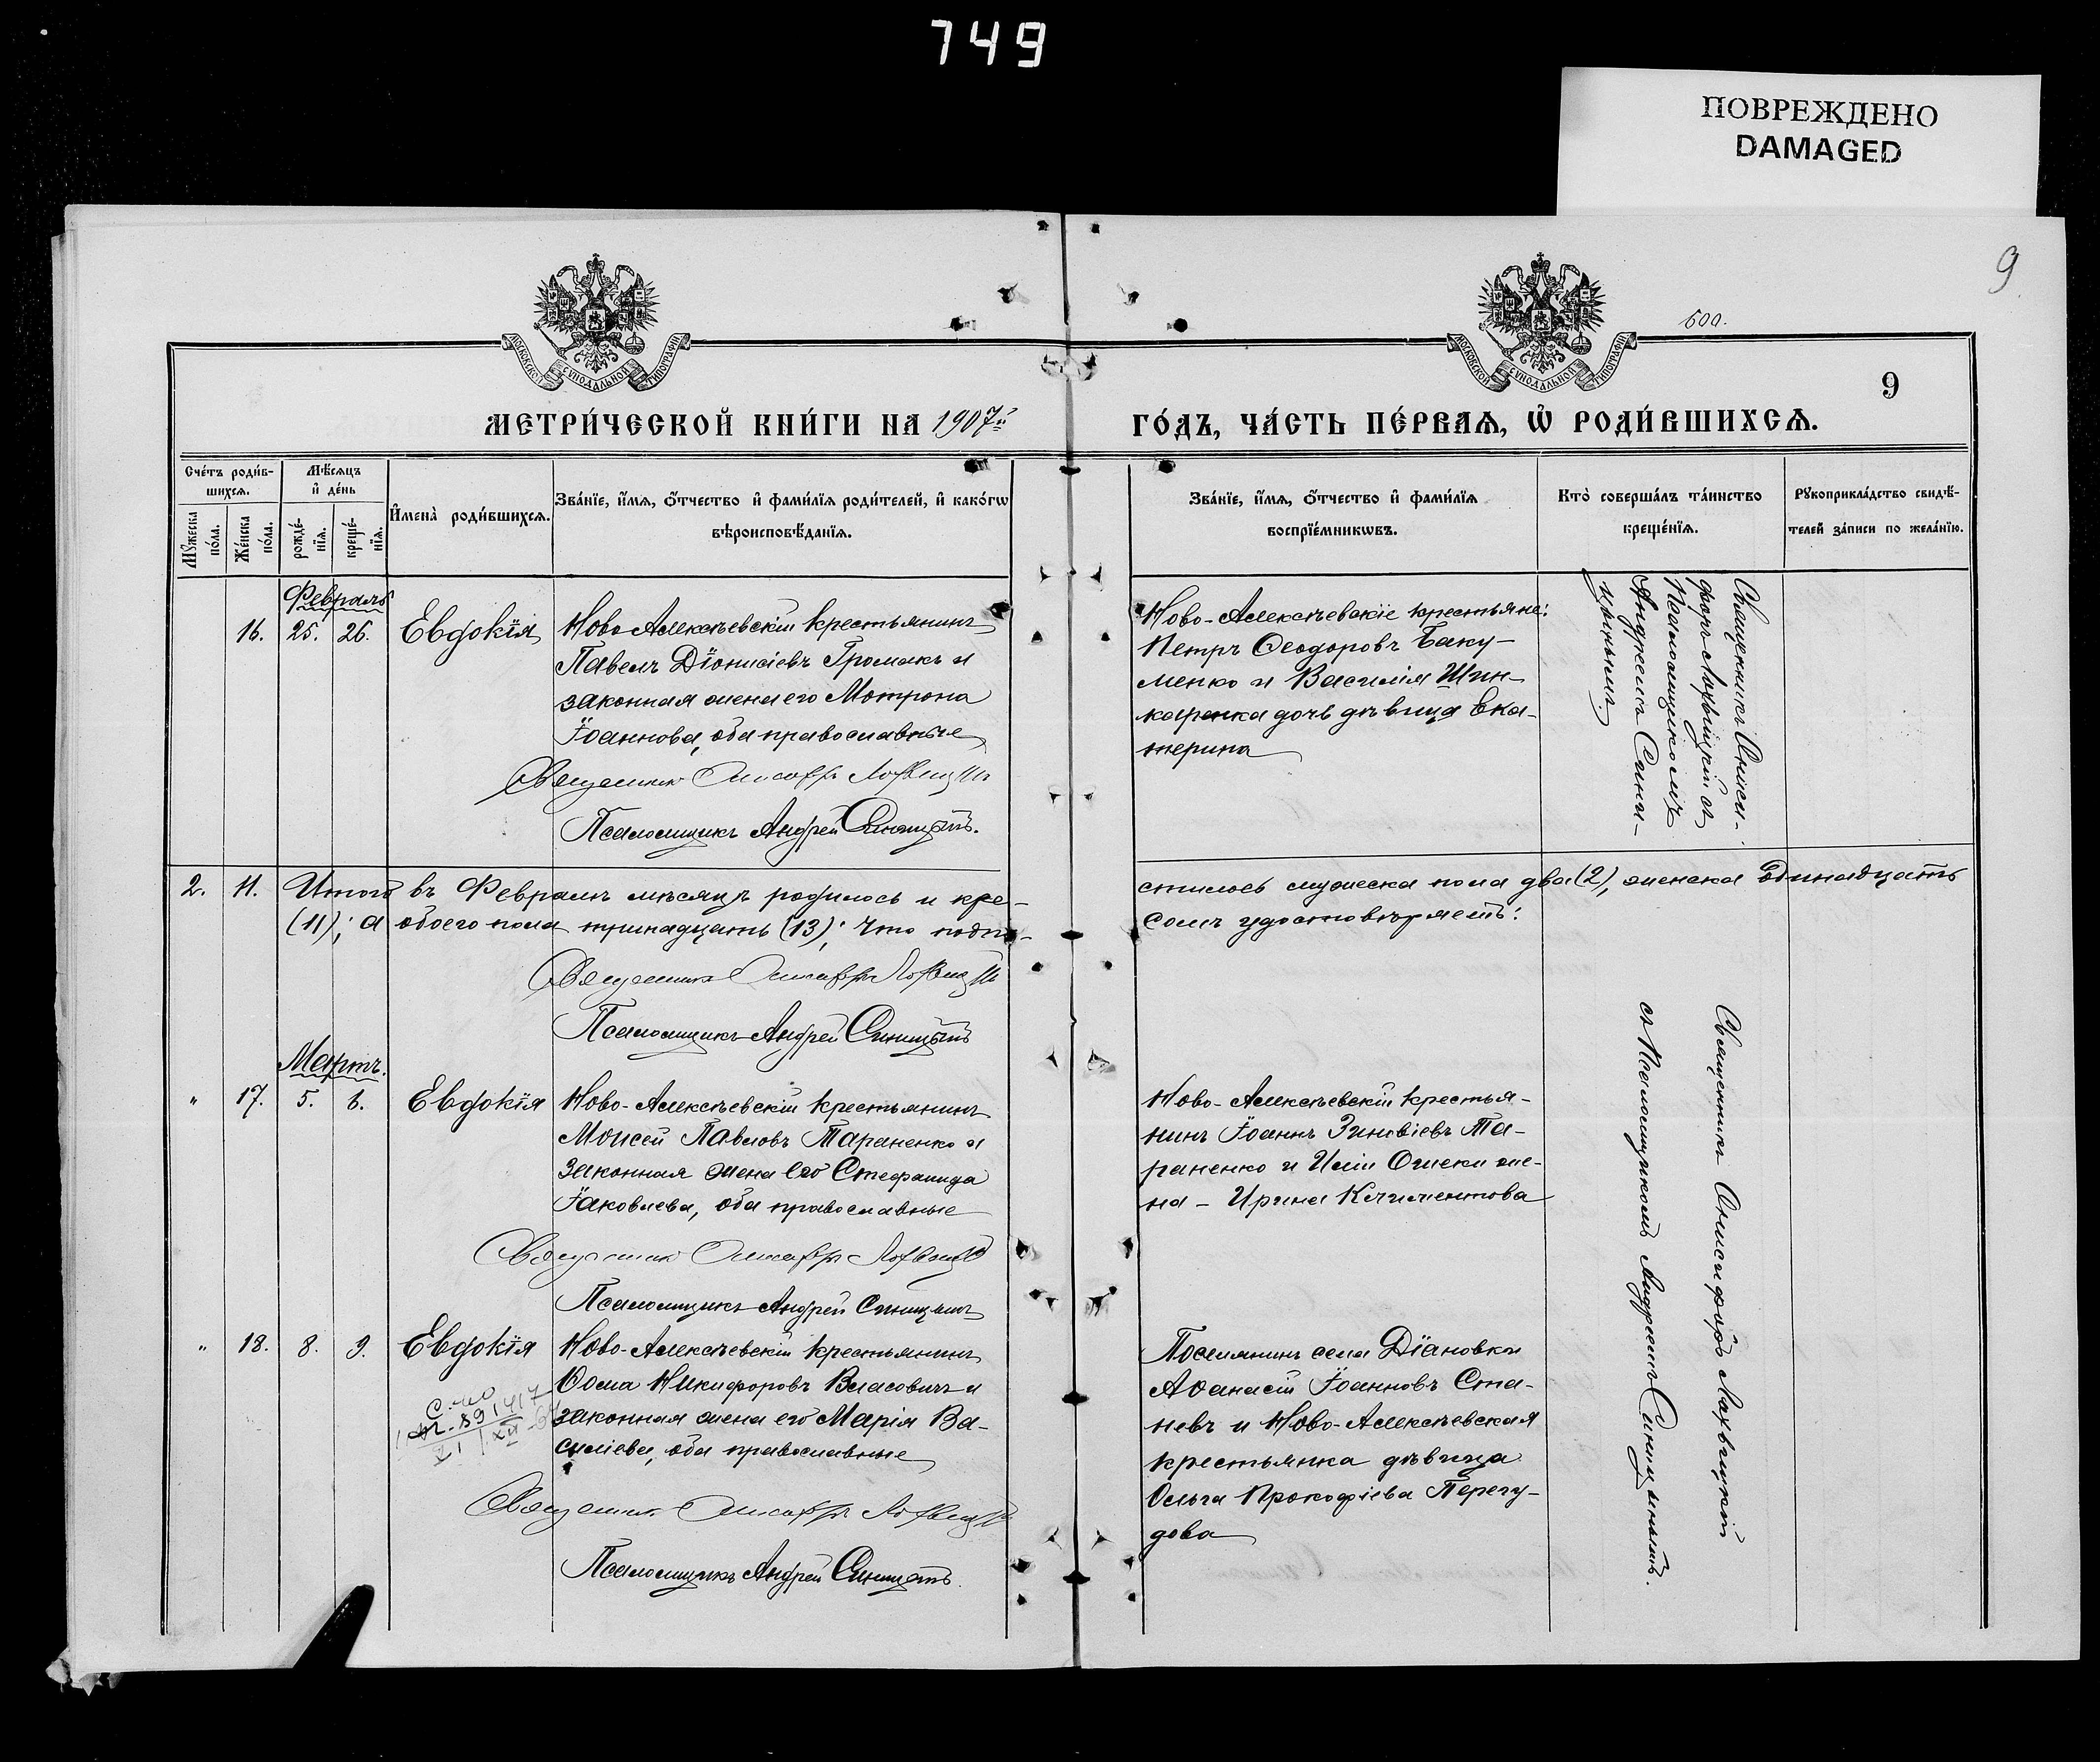 749
ПОВРЕЖДЕНО
DAMAGED
9
600.
МОСКОВСКОЙ СѴНОДАЛЬНОЙ ТИПОГРАФІИ
МОСКОВСКОЙ СѴНОДАЛЬНОЙ ТИПОГРАФІИ
9
МЕТРИ́ЧЕСКОЙ КНИ́ГИ НА 1907й
ГО́ДЪ, ЧА́СТЬ ПЕ́РВАѦ, Ѡ҆ РОДИ́ВШИХСѦ.
Сче́тъ роди́в-
шихсѧ.
Мꙋ́жеска
по́ла.
Же́нска
по́ла.
Мѣ́сѧцъ
и҆ де́нь
рожде́-
нїѧ.
креще́-
нїѧ.
И҆мена̀ роди́вшихсѧ.
Зва́нїе, и҆́мѧ, ѻ҆́тчество и҆ фами́лїѧ роди́телей, и҆ како́гѡ
вѣроисповѣ́данїѧ.
Зва́нїе, и҆́мѧ, ѻ҆́тчество и҆ фами́лїѧ
воспрїе́мникѡвъ.
Кто̀ соверша́лъ та́инство
креще́нїѧ.
Рꙋкоприкла́дство свидѣ́-
телей за́писи по жела́нїю.
Февраль
16. 25. 26. Евдокія
Ново-Алексѣевскій крестьянинъ
Павелъ Діонисіевъ Громакъ и
законная жена его Мотрона
Іоаннова, оба православные
Священникъ Онисифоръ Лохвицкій
Псаломщикъ Андрей Синицынъ.
Ново-Алексѣевскіе крестьяне:
Петръ Ѳеодоровъ Баку-
менко и Василія Шин-
каренка дочь дѣвица Ека-
терина
Священникъ Ониси-
форъ Лохвицкій съ
Псаломщикомъ
Андреемъ Сини-
цынымъ.
2. 11. Итого въ Февралѣ мѣсяцѣ родилось и кре-
стилось мужеска пола два (2), женска одинадцать
(11); а обоего пола тринадцать (13); Что подпи-
сомъ удостовѣряемъ:
Священникъ Онисифоръ Лохвицкій
Псаломщикъ Андрей Синицынъ
Мартъ.
" 17. 5. 6. Евдокія
Ново-Алексѣевскій крестьянинъ
Моисей Павловъ Тараненко и
законная жена его Стефанида
Іаковлева, оба православные
Священникъ Онисифоръ Лохвицкій
Псаломщикъ Андрей Синицынъ
Ново-Алексѣевскій крестья-
нинъ Іоаннъ Зиновіевъ Та-
раненко и Иліи же-
на - Ирина Климентова
Священникъ Онисифоръ Лохвицкій
съ Псаломщикомъ Андреемъ Синицынымъ.
" 18. 8. 9. Евдокія
Ново-Алексѣевскій крестьянинъ
Ѳома Никифоровъ Власовичъ и
законная жена его Марія Ва-
силіева, оба православные
Священникъ Онисифоръ Лохвицкій
Псаломщикъ Андрей Синицынъ.
Поселянинъ села Діановки
Аѳанасій Іоанновъ Ста-
невъ и Ново-Алексѣевская
крестьянка дѣвица
Ольга Прокофіева Перегу-
дова